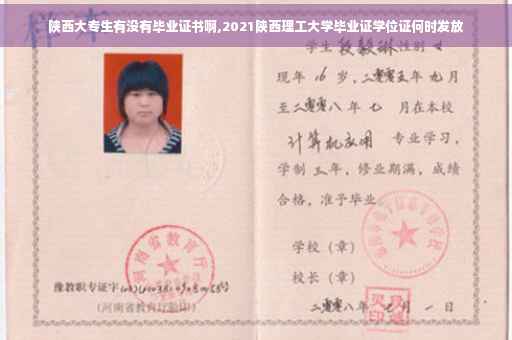 陕西大专生有没有毕业证书啊,2021陕西理工大学毕业证学位证何时发放
学生 段毅琳 性别 女
现年 16 岁,二零零五年 九月
至二零零八年 七 月在本校
计算机应用 专业学习,
学制 三年,修业期满,成绩
合格,准予毕业
学校(章)
校长(章)
二零零八年 七月 一日
河南省教育厅
豫教职专证字
(河南省教育厅验印)